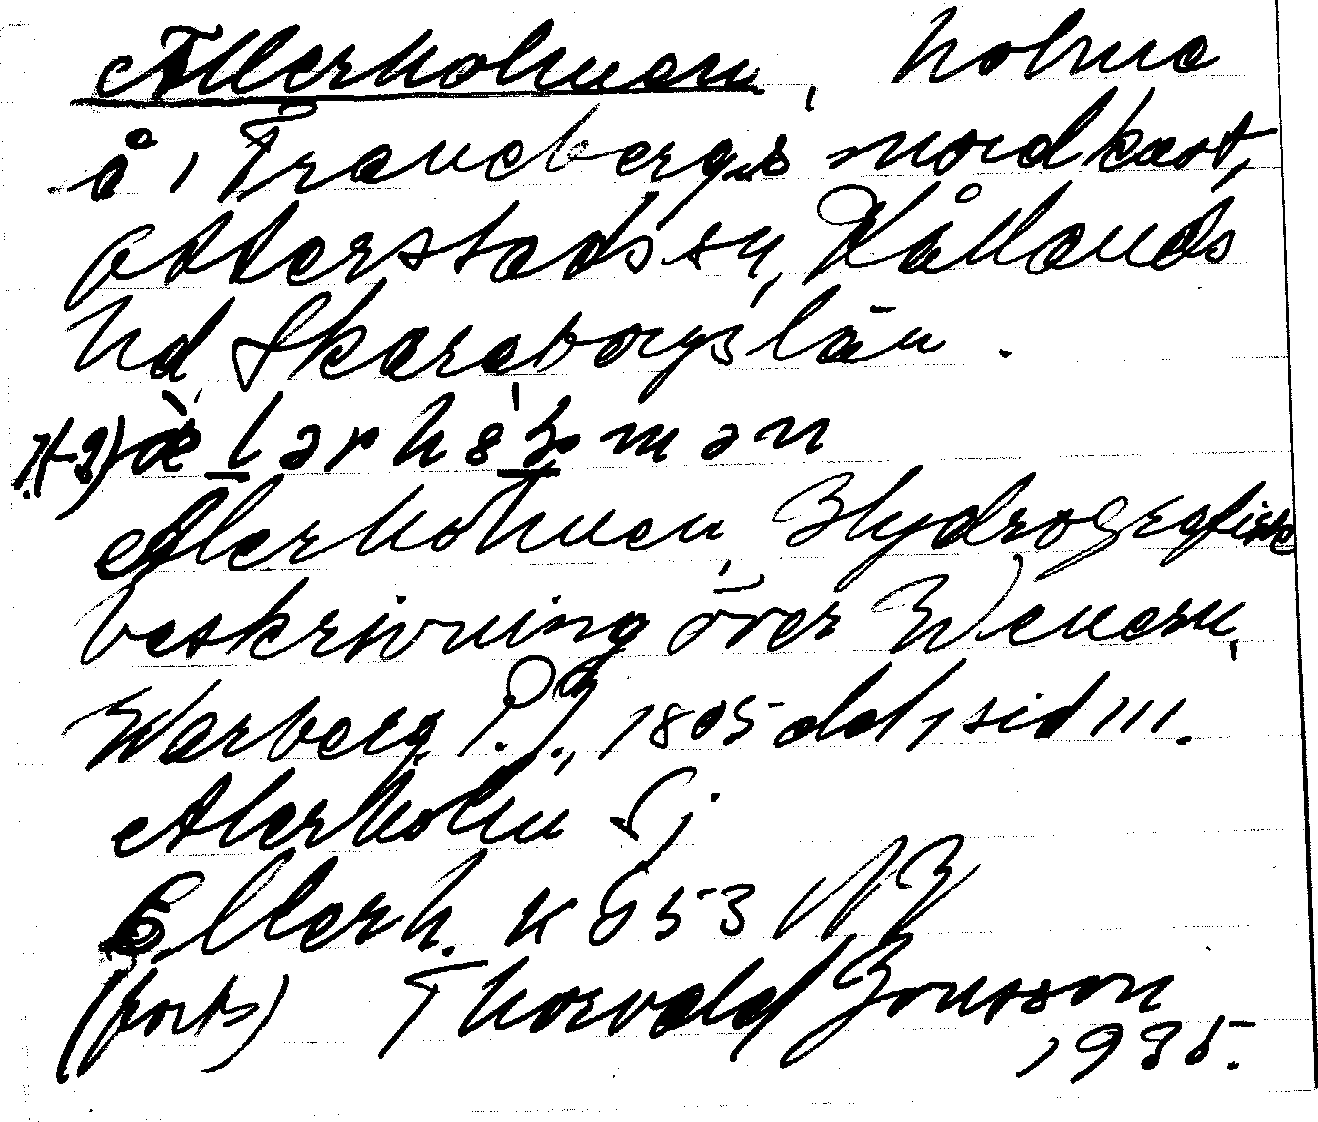 Allerholmen, holme
å, Traneberg,s nordkast,
Otterstads sn, Kållands
hd, Skaraborgs län.
Alerholmen, Hydrografiske
beskrivning över Wenern,
Warberg P. J., 1805 del, sid 111.
Alerholm Sj.
Ellerh. K 653
(forts) Thorvald Jonsson
1935.